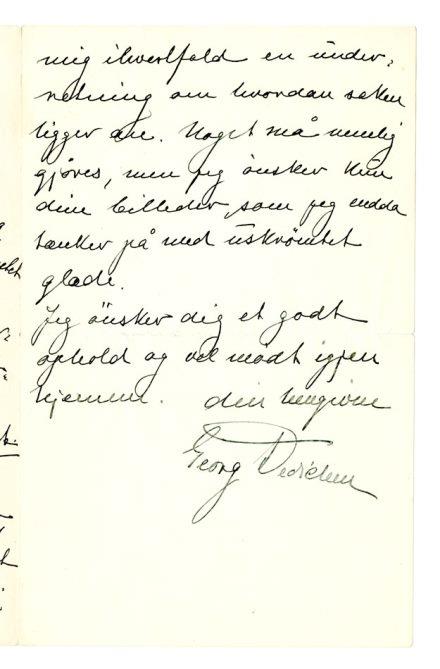 mig ihvertfald en under-
retning om hvordan saken
ligger an. Noget må nemlig
gjöres, men jeg önsker kun
dine billeder, som jeg endda
tænker på med uskrömtet
glæde.
Jeg önsker dig et godt
ophold og vel mödt igjen
hjemme. din hengivne
Georg Dedichen